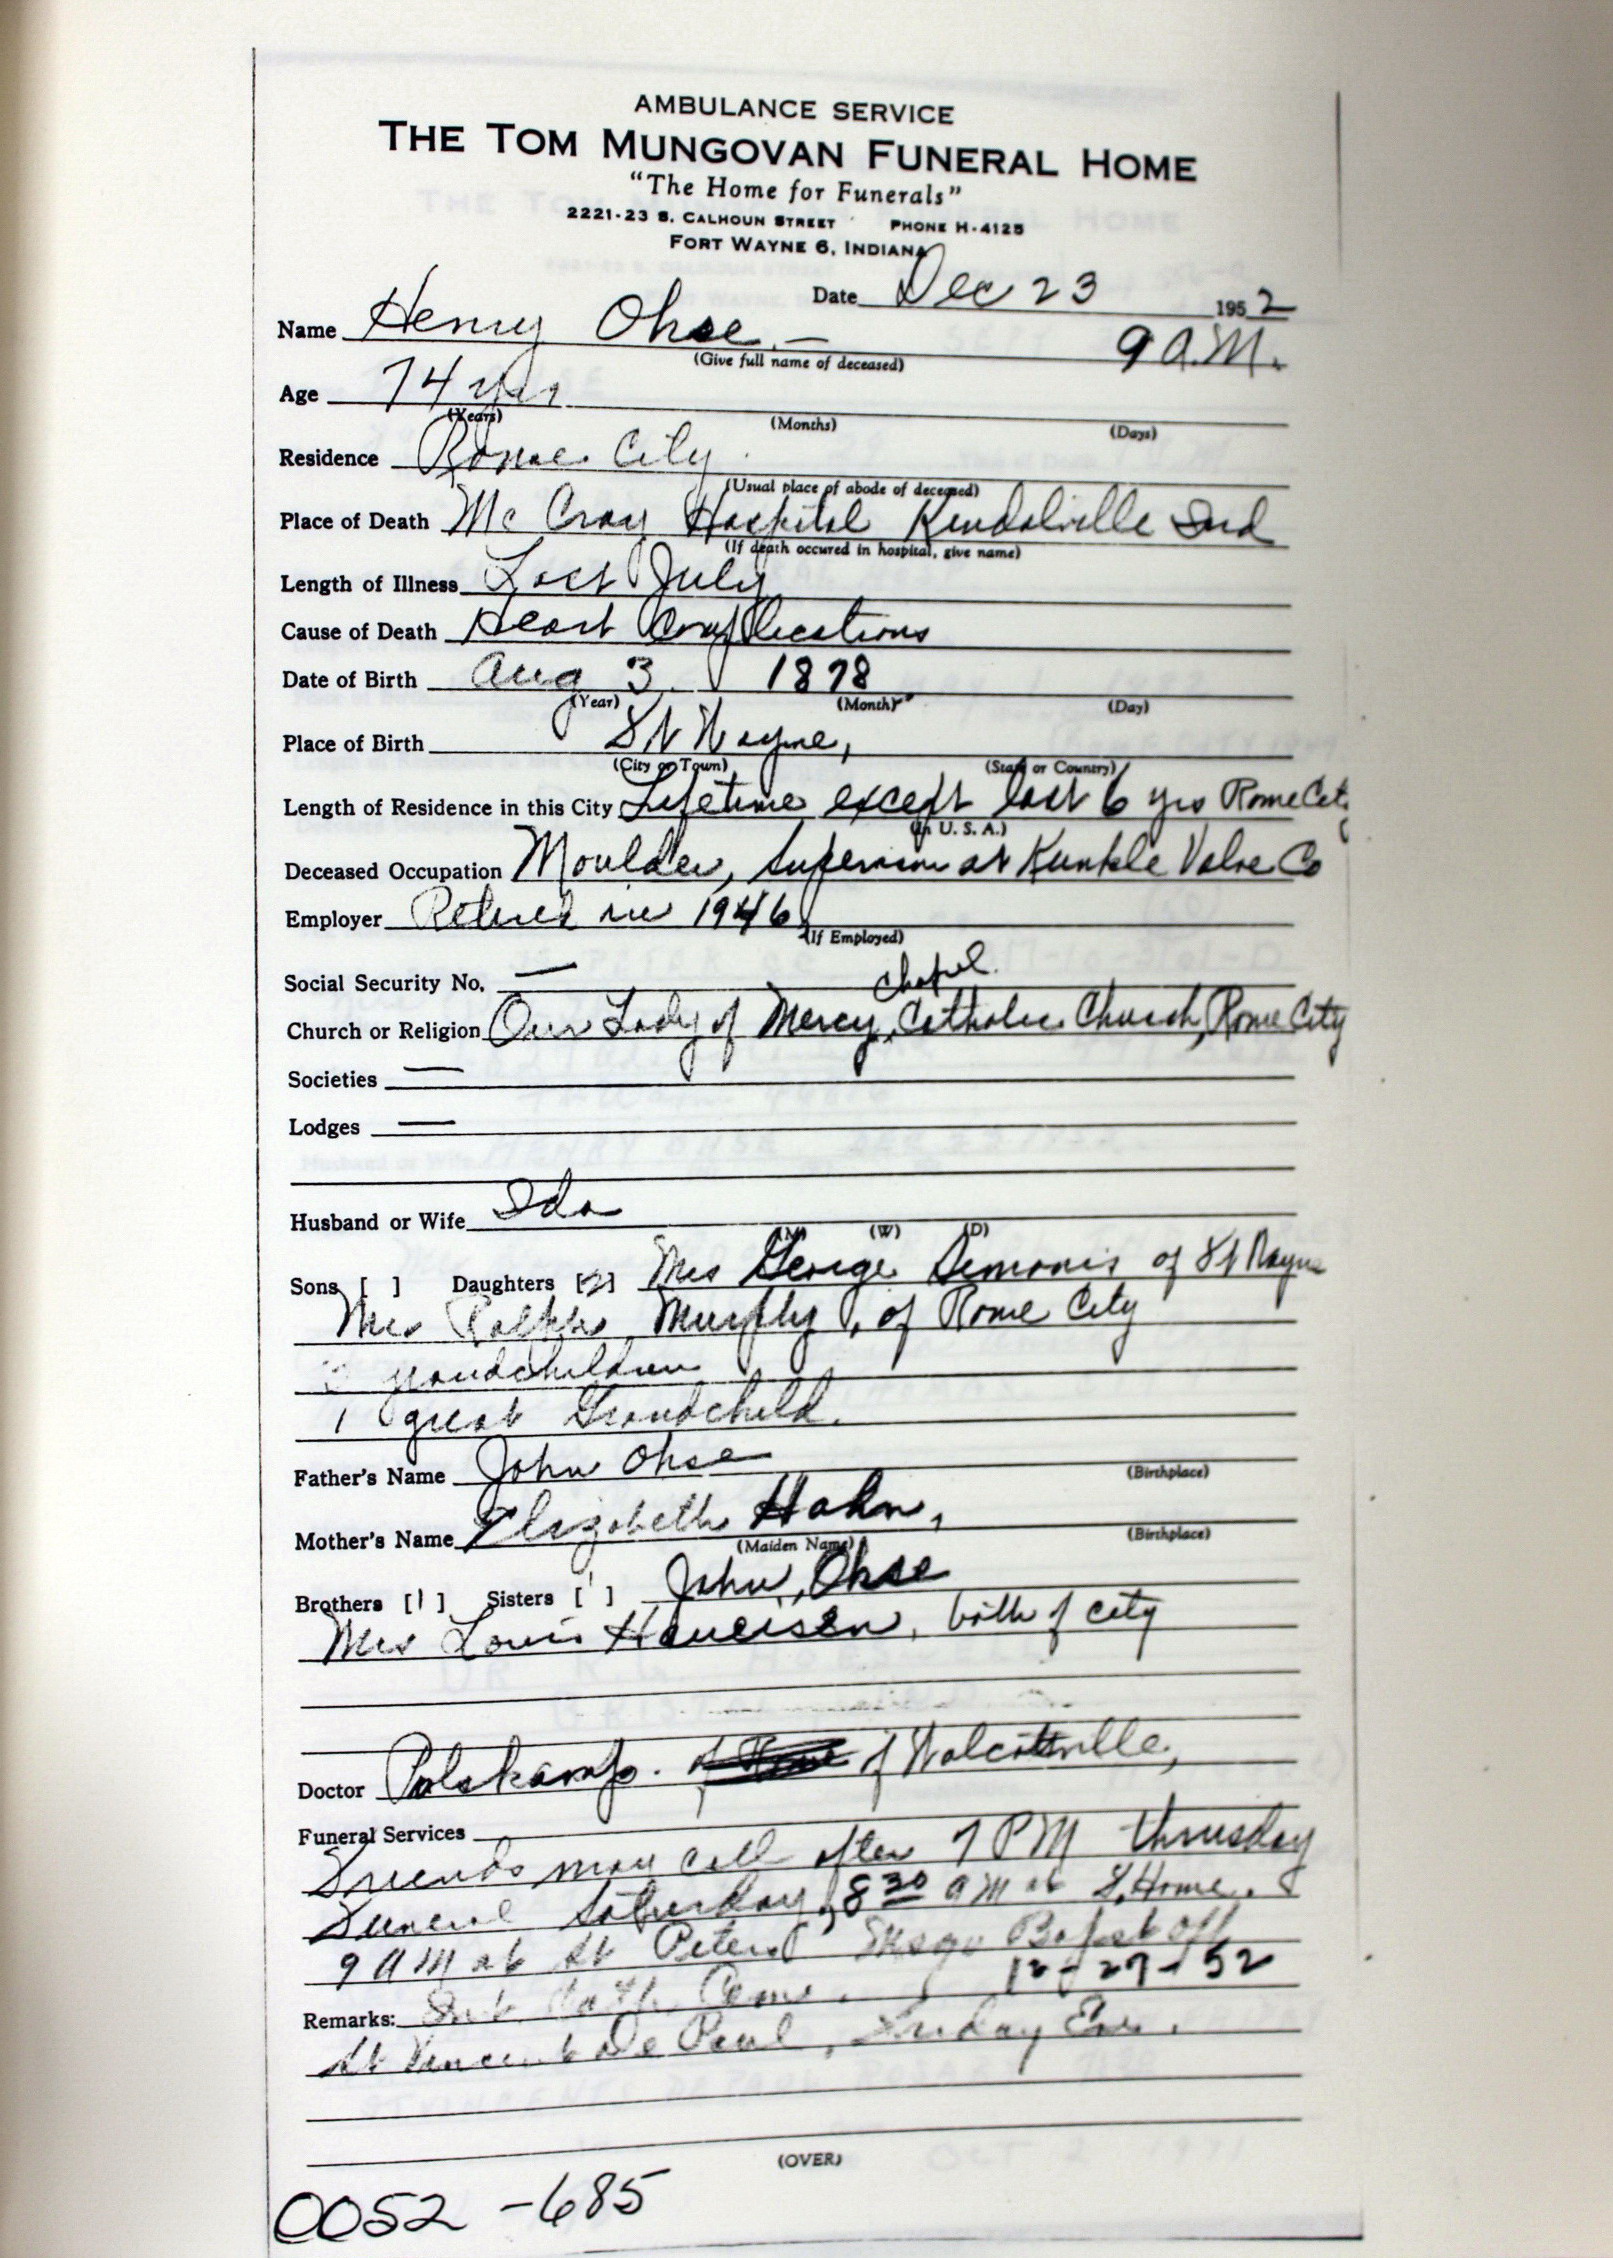 AMBULANCE SERVICE
THE TOM MUNGOVAN FUNERAL HOME
"The Home for Funerals"
2221-23 S. CALHOUN STREET PHONE H-4125
FORT WAYNE 6, INDIANA
Date Dec 23 1952
Name Henry Ohse - 9 A.M.
(Give full name of deceased)
Age 74 yrs
(Years) (Months) (Days)
Residence Rome City
(Usual place of abode of deceased)
Place of Death Mc Cray Hospital Kendalville Ind
(If death occured in hospital, give name)
Length of Illness Last July
Cause of Death Heart Complications
Date of Birth Aug 3 1878
(Year) (Month) (Day)
Place of Birth Ft Wayne,
(City or Town) (State or Country)
Length of Residence in this City Lifetime except last 6 yrs Rome City
(In U. S. A.)
Deceased Occupation Moulder, Supervisor at Kunkle Valve Co
Employer Retired in 1946
(If Employed)
Social Security No. —
chapel
Church or Religion Our Lady of Mercy, Catholic Church, Rome City
Societies —
Lodges —
Husband or Wife Ida
(M) (W) (D)
Sons [ ] Daughters [2] Mrs George Simonis of Ft Wayne
Mrs Ralph Murphy, of Rome City
grandchildren
1 great Grandchild.
Father's Name John Ohse
(Birthplace)
Mother's Name Elizabeth Hahn,
(Maiden Name) (Birthplace)
Brothers [1] Sisters [1] John, Ohse
Mrs Louis Haueisen, both of city
Doctor Polskamp. of Wolcottville,
Funeral Services
Friends may call after 7 PM thrusday
Funeral Saturday, 8 30 am at F. Home.
9 AM at St Peters Msgr off
12-27-52
Remarks: Int. Cath. Cem.
St Vincent De Paul, Friday Eve.
(OVER)
0052-685